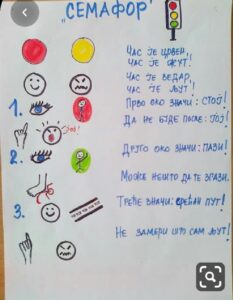 „СЕМАФОР"
ЧАС ЈЕ ЦРВЕН,
ЧАС ЈЕ ЖУТ!
ЧАС ЈЕ ВЕДАР,
ЧАС ЈЕ ЉУТ!
1. ПРВО ОКО ЗНАЧИ: СТОЈ!
ДА НЕ БУДЕ ПОСЛЕ: ЈОЈ!
ЈОЈ!
2. ДРУГО ОКО ЗНАЧИ: ПАЗИ!
МОЖЕ НЕШТО ДА ТЕ ЗГАЗИ.
3. ТРЕЋЕ ЗНАЧИ: СРЕЋАН ПУТ!
НЕ ЗАМЕРИ ШТО САМ ЉУТ!